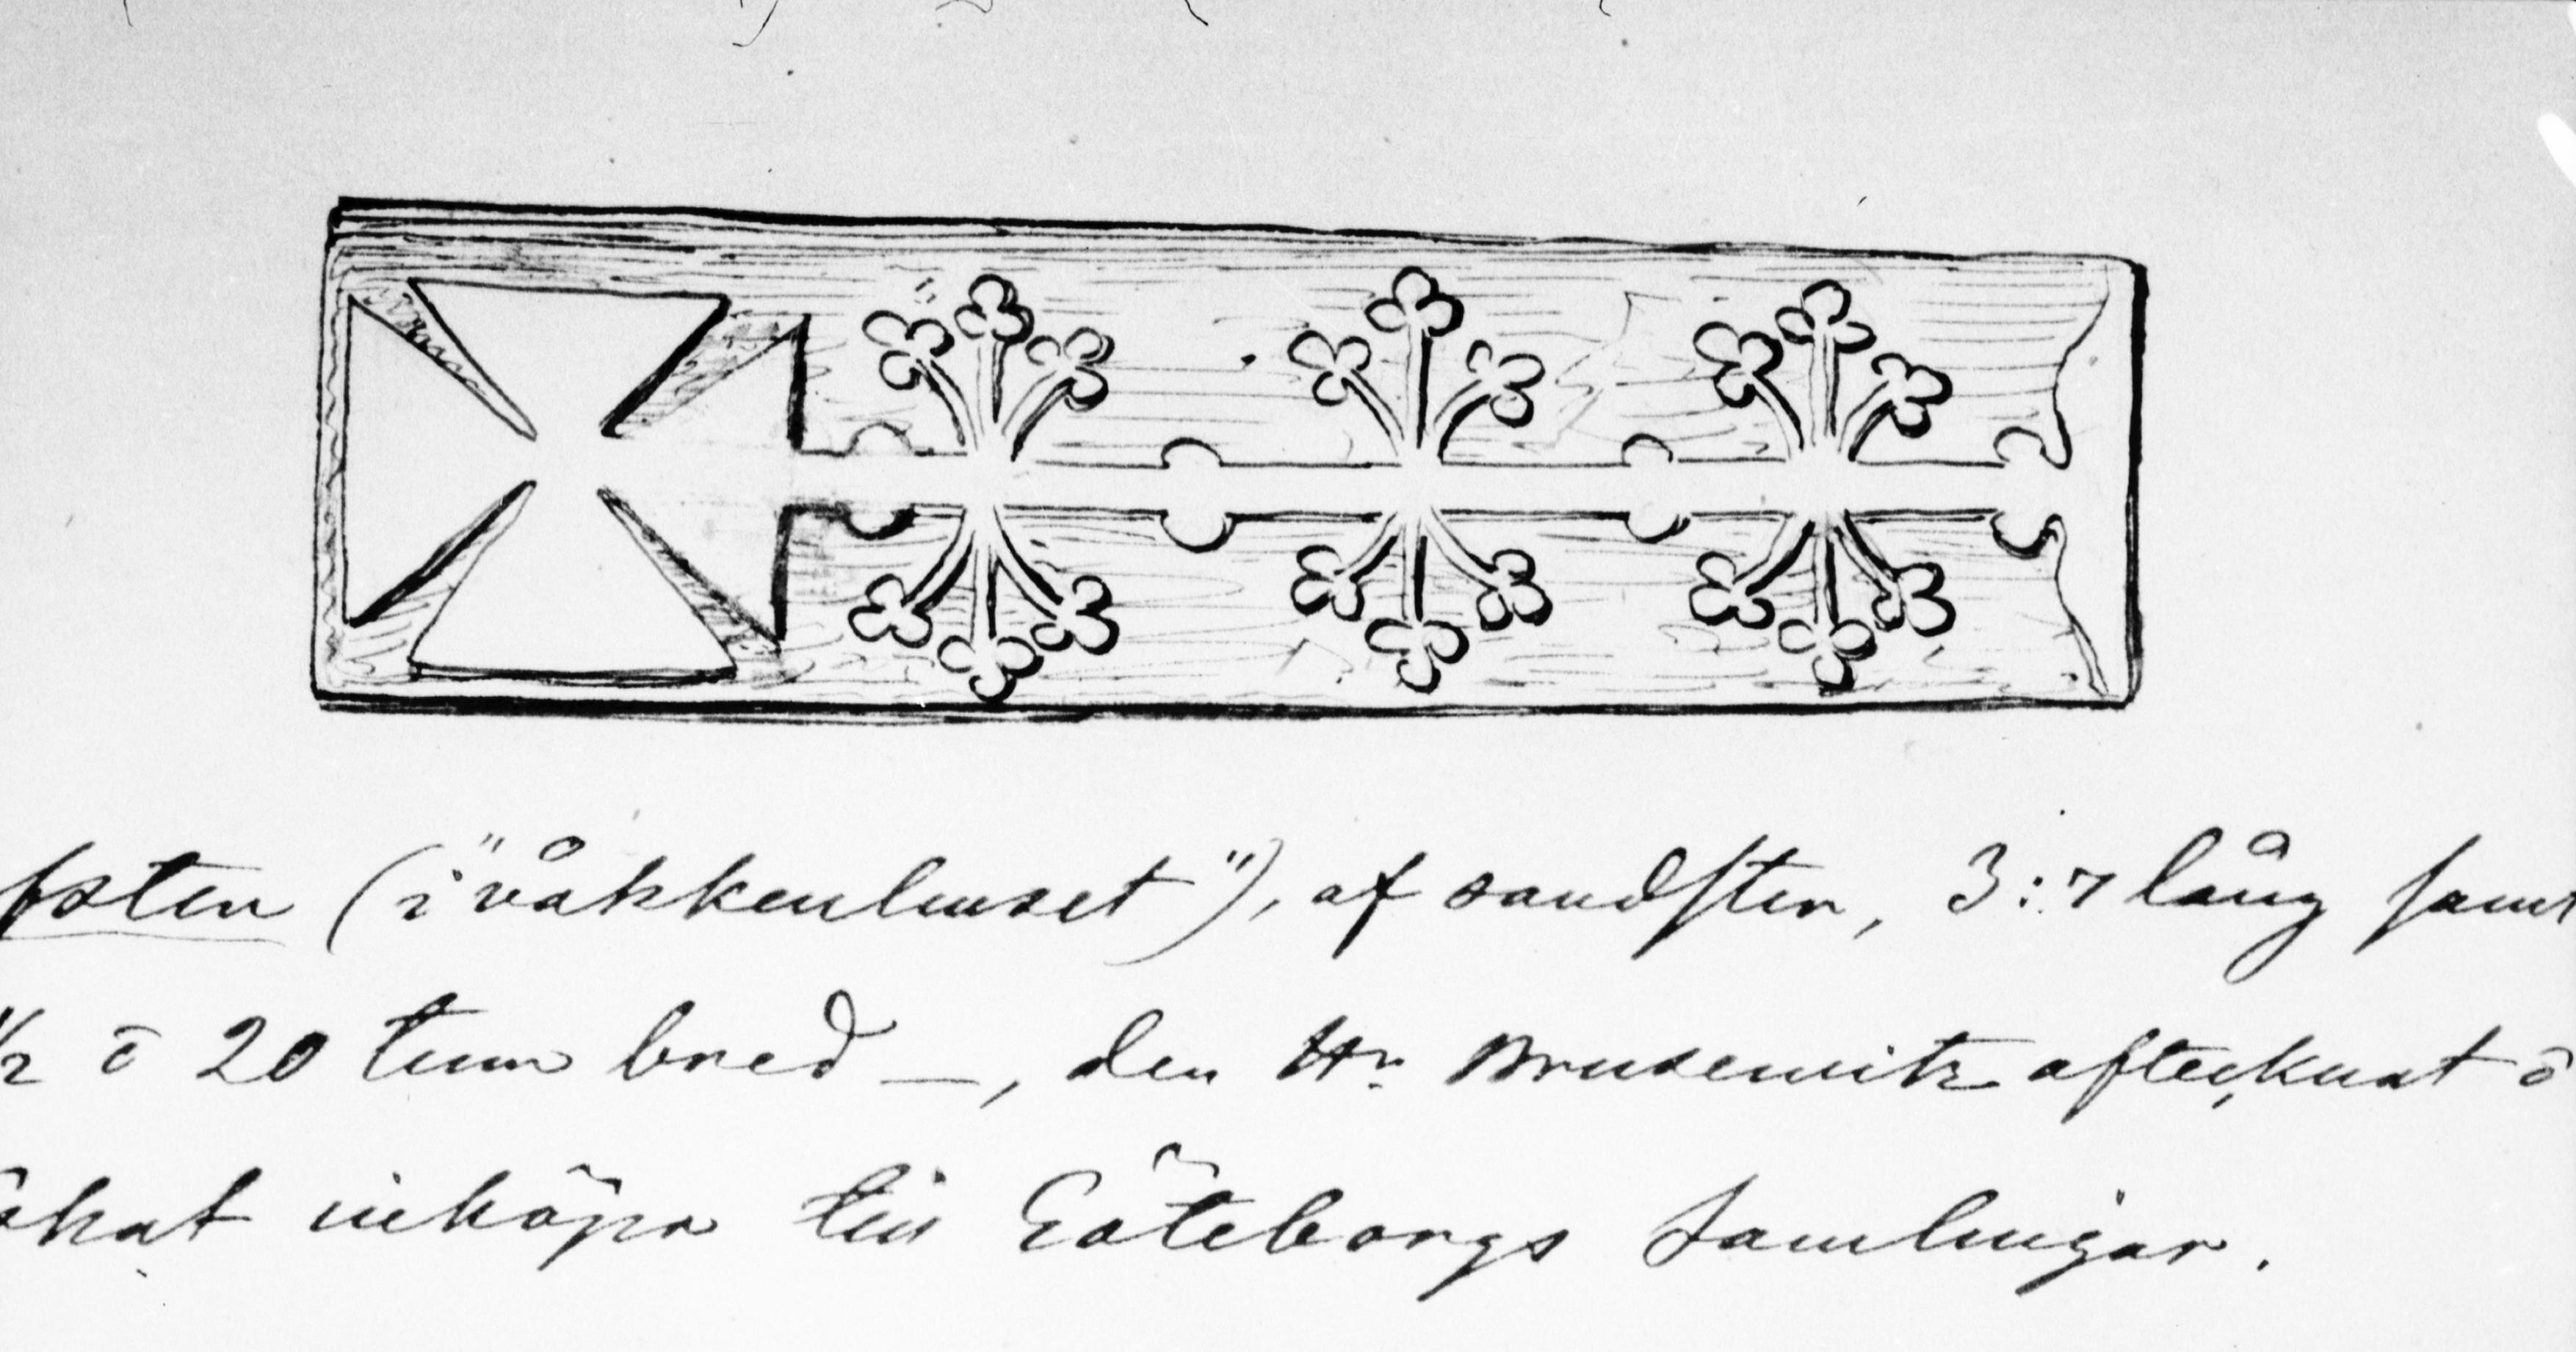 fsten (i "våkkenhuset"), af sandsten, 3:7 lång samt
1/2 o 20 tum bred —, den Hr Brusewitz aftecknat o
inköpa till Göteborgs Samlingar.